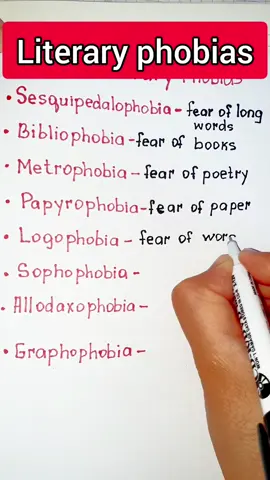 Literary phobias
Phobias
• Sesquipedalophobia - fear of long
words
• Bibliophobia - fear of books
• Metrophobia - fear of poetry
• Papyrophobia - fear of paper
• Logophobia - fear of wor
• Sophophobia -
• Allodaxophobia -
• Graphophobia -